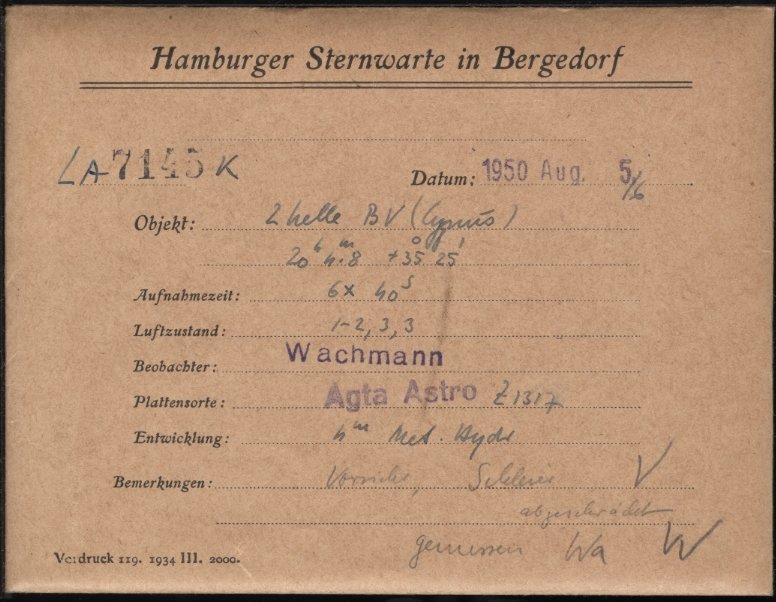 Hamburger Sternwarte in Bergedorf
LA 7145 K
Datum: 1950 Aug. 5/6
Objekt: 2 helle BV (Cygnus)
20h 4m.8 +35° 25'
Aufnahmezeit: 6x 40s
Luftzustand: 1-2, 3, 3
Beobachter: Wachmann
Plattensorte: Agfa Astro Z1317
Entwicklung: 4m Met. Hydr
Bemerkungen: Vorsicht, Schleier V
abgeschwächt
gemessen Wa W
Vordruck 119. 1934 III. 2000.